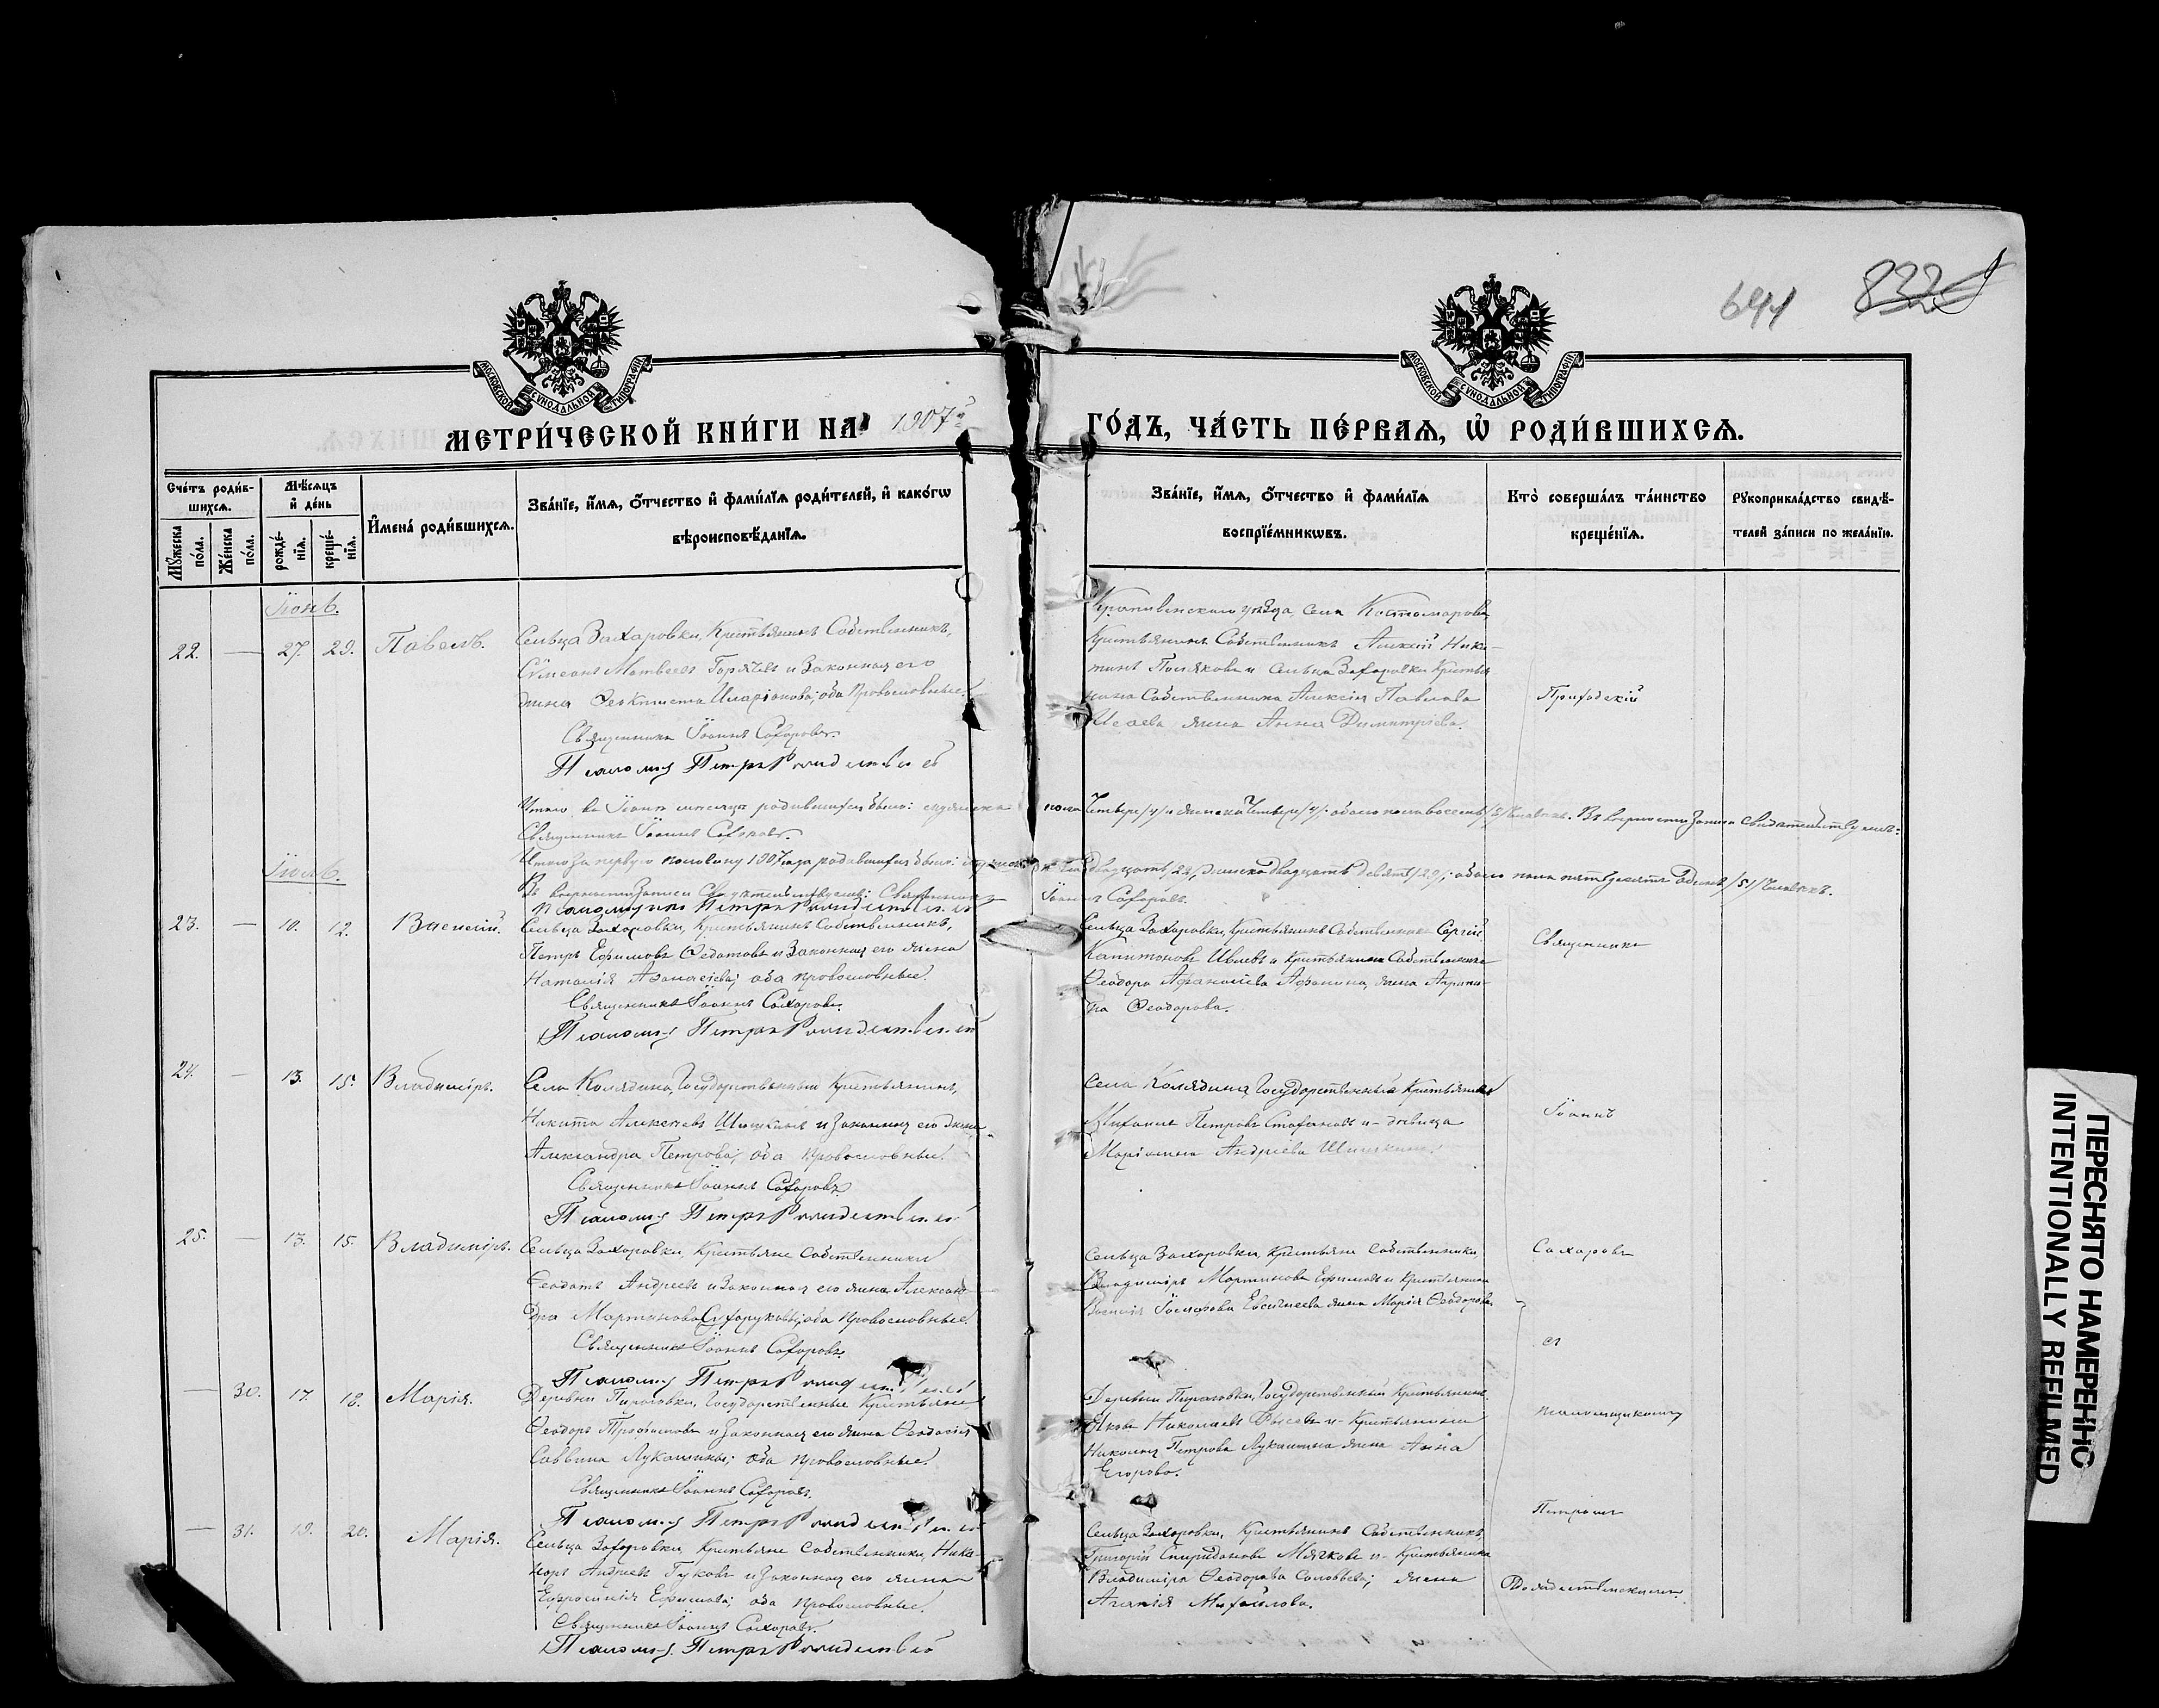 644 832
МОСКОВСКОЙ СУНОДАЛЬНОЙ ТИПОГРАФІИ
МОСКОВСКОЙ СУНОДАЛЬНОЙ ТИПОГРАФІИ
МЕТРИ́ЧЕСКОЙ КНИ́ГИ НА 1907й
ГО́ДЪ, ЧА́СТЬ ПЕ́РВАѦ, Ѡ҆ РОДИ́ВШИХСѦ.
Сче́тъ роди́в-
шихсѧ.
Мꙋ́жеска по́ла.
Же́нска по́ла.
Мѣ́сѧцъ и҆ де́нь
рожде́-нїѧ.
креще́-нїѧ.
И҆мена̀ роди́вшихсѧ.
Зва́нїе, и҆́мѧ, ѻ҆́тчество и҆ фами́лїѧ роди́телей, и҆ како́гѡ
вѣроисповѣ́данїѧ.
Зва́нїе, и҆́мѧ, ѻ҆́тчество и҆ фами́лїѧ
воспрїе́мникѡвъ.
Кто̀ соверша́лъ та́инство
креще́нїѧ.
Рꙋкоприкла́дство свидѣ́-
телей за́писи по жела́нїю.
Іюнь.
22. — 27. 29. Павелъ.
Сельца Захаровки, Крестьянинъ Собственникъ,
Сѵмеонъ Матвеевъ Горячевъ и законная его
жена Феоктиста Иларіонова; оба Православные.
Священникъ Іоаннъ Сахаровъ.
Псаломщ Петръ Рождественскій
Крапивенскаго уѣзда, села Костомарова,
Крестьянинъ Собственникъ Алексій Ники-
тинъ Поляковъ и сельца Захаровки Крестья-
нина Собственника Алексія Павлова
Исаева жена Анна Димитріева.
Приходскій
Итого въ Іюнѣ мѣсяцѣ родившихся было: мужеска пола Четверо /4/ и женска Четверо /4/; обоего пола восемь /8/ человѣкъ. Въ верности записи свидетельствуемъ:
Священникъ Іоаннъ Сахаровъ.
Итого за первую половину 1907 года родившихся было: мужеска пола двадцать /22/, женска двадцать девять /29/; обоего пола пятьдесятъ одинъ /51/ человѣкъ.
Въ верности записи свидетельствуемъ: Священникъ Іоаннъ Сахаровъ.
Псаломщикъ Петръ Рождественскій
Іюль.
23. — 10. 12. Василій.
Сельца Захаровки, Крестьянинъ Собственникъ,
Петръ Ефимовъ Федотовъ и законная его жена
Наталія Афанасіева; оба православные.
Священникъ Іоаннъ Сахаровъ.
Псаломщ Петръ Рождественскій
Сельца Захаровки, Крестьянинъ Собственникъ Сергій
Капитоновъ Ивлевъ и Крестьянина Собственника
Феодора Афанасіева Афонина, жена Агрипи-
на Феодорова.
Священникъ
24. — 13. 15. Владиміръ.
Села Колядина, Государственный Крестьянинъ,
Никита Алексеевъ Шишкинъ и законная его жена
Александра Петрова; оба православные.
Священникъ Іоаннъ Сахаровъ.
Псаломщ Петръ Рождественскій
Села Колядина, Государственный Крестьянинъ
Михаилъ Петровъ Стафановъ и — девица
Маріамна Андріева Шишкина.
Іоаннъ
25. — 13. 15. Владиміръ.
Сельца Захаровки, Крестьяне Собственники
Феодотъ Андреевъ и законная его жена Алексан-
дра Мартинова Сухоруковы; оба православные.
Священникъ Іоаннъ Сахаровъ.
Псаломщ Петръ Рождественскій
Сельца Захаровки, Крестьяне Собственники,
Владиміръ Мартиновъ Ефимовъ и Крестьянина
Василія Евсигнеева жена Марія Феодорова.
Сахаровъ
съ
— 30. 17. 18. Марія.
Деревни Пироговки, Государственные Крестьяне
Феодоръ Трофимовъ и законная его жена Феодосія
Саввина Лукашины; оба православные.
Священникъ Іоаннъ Сахаровъ.
Псаломщ Петръ Рождественскій
Деревни Пироговки, Государственный Крестьянинъ
Яковъ Николаевъ и — Крестьянина
Николая Петрова Лукашина жена Анна
Егорова.
псаломщикомъ
— 31. 19. 20. Марія.
Сельца Захаровки, Крестьяне Собственники, Ника-
норъ Андреевъ Гуковъ и законная его жена
Евфросинія Ефимова; оба православные.
Священникъ Іоаннъ Сахаровъ.
Псаломщ. Петръ Рождественскій
Сельца Захаровки, Крестьянинъ Собственникъ,
Григорій Спиридоновъ Мячковъ и — Крестьянина
Владиміра Феодорова Соловьева; жена
Агапія Михайлова.
Петромъ
Рождественскимъ.
ПЕРЕСНЯТО НАМЕРЕННО
INTENTIONALLY REFILMED